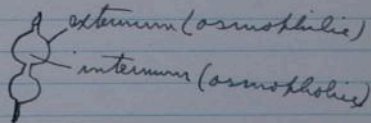 externum (osmophilic)
internum (osmophobic)